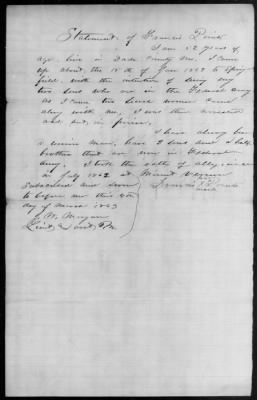 Statement of Francis
I am 52 years of
age, live in Dade County Mo. I came
up about the 15th of Jan 1863 to Spring
field with the intention of seeing my
two sons who are in the Federal army
as I came two loved women came
along with me, I was then arrested
and put in prison.
I have always been
a union man, have 2 sons and 1 half
brother that are now in Federal
army. I took the oath of allegiance
in July 1862 at Mount Vernon
Subscribed and sworn
to before me this
day of March 1863
Francis
his
mark
Lieut,